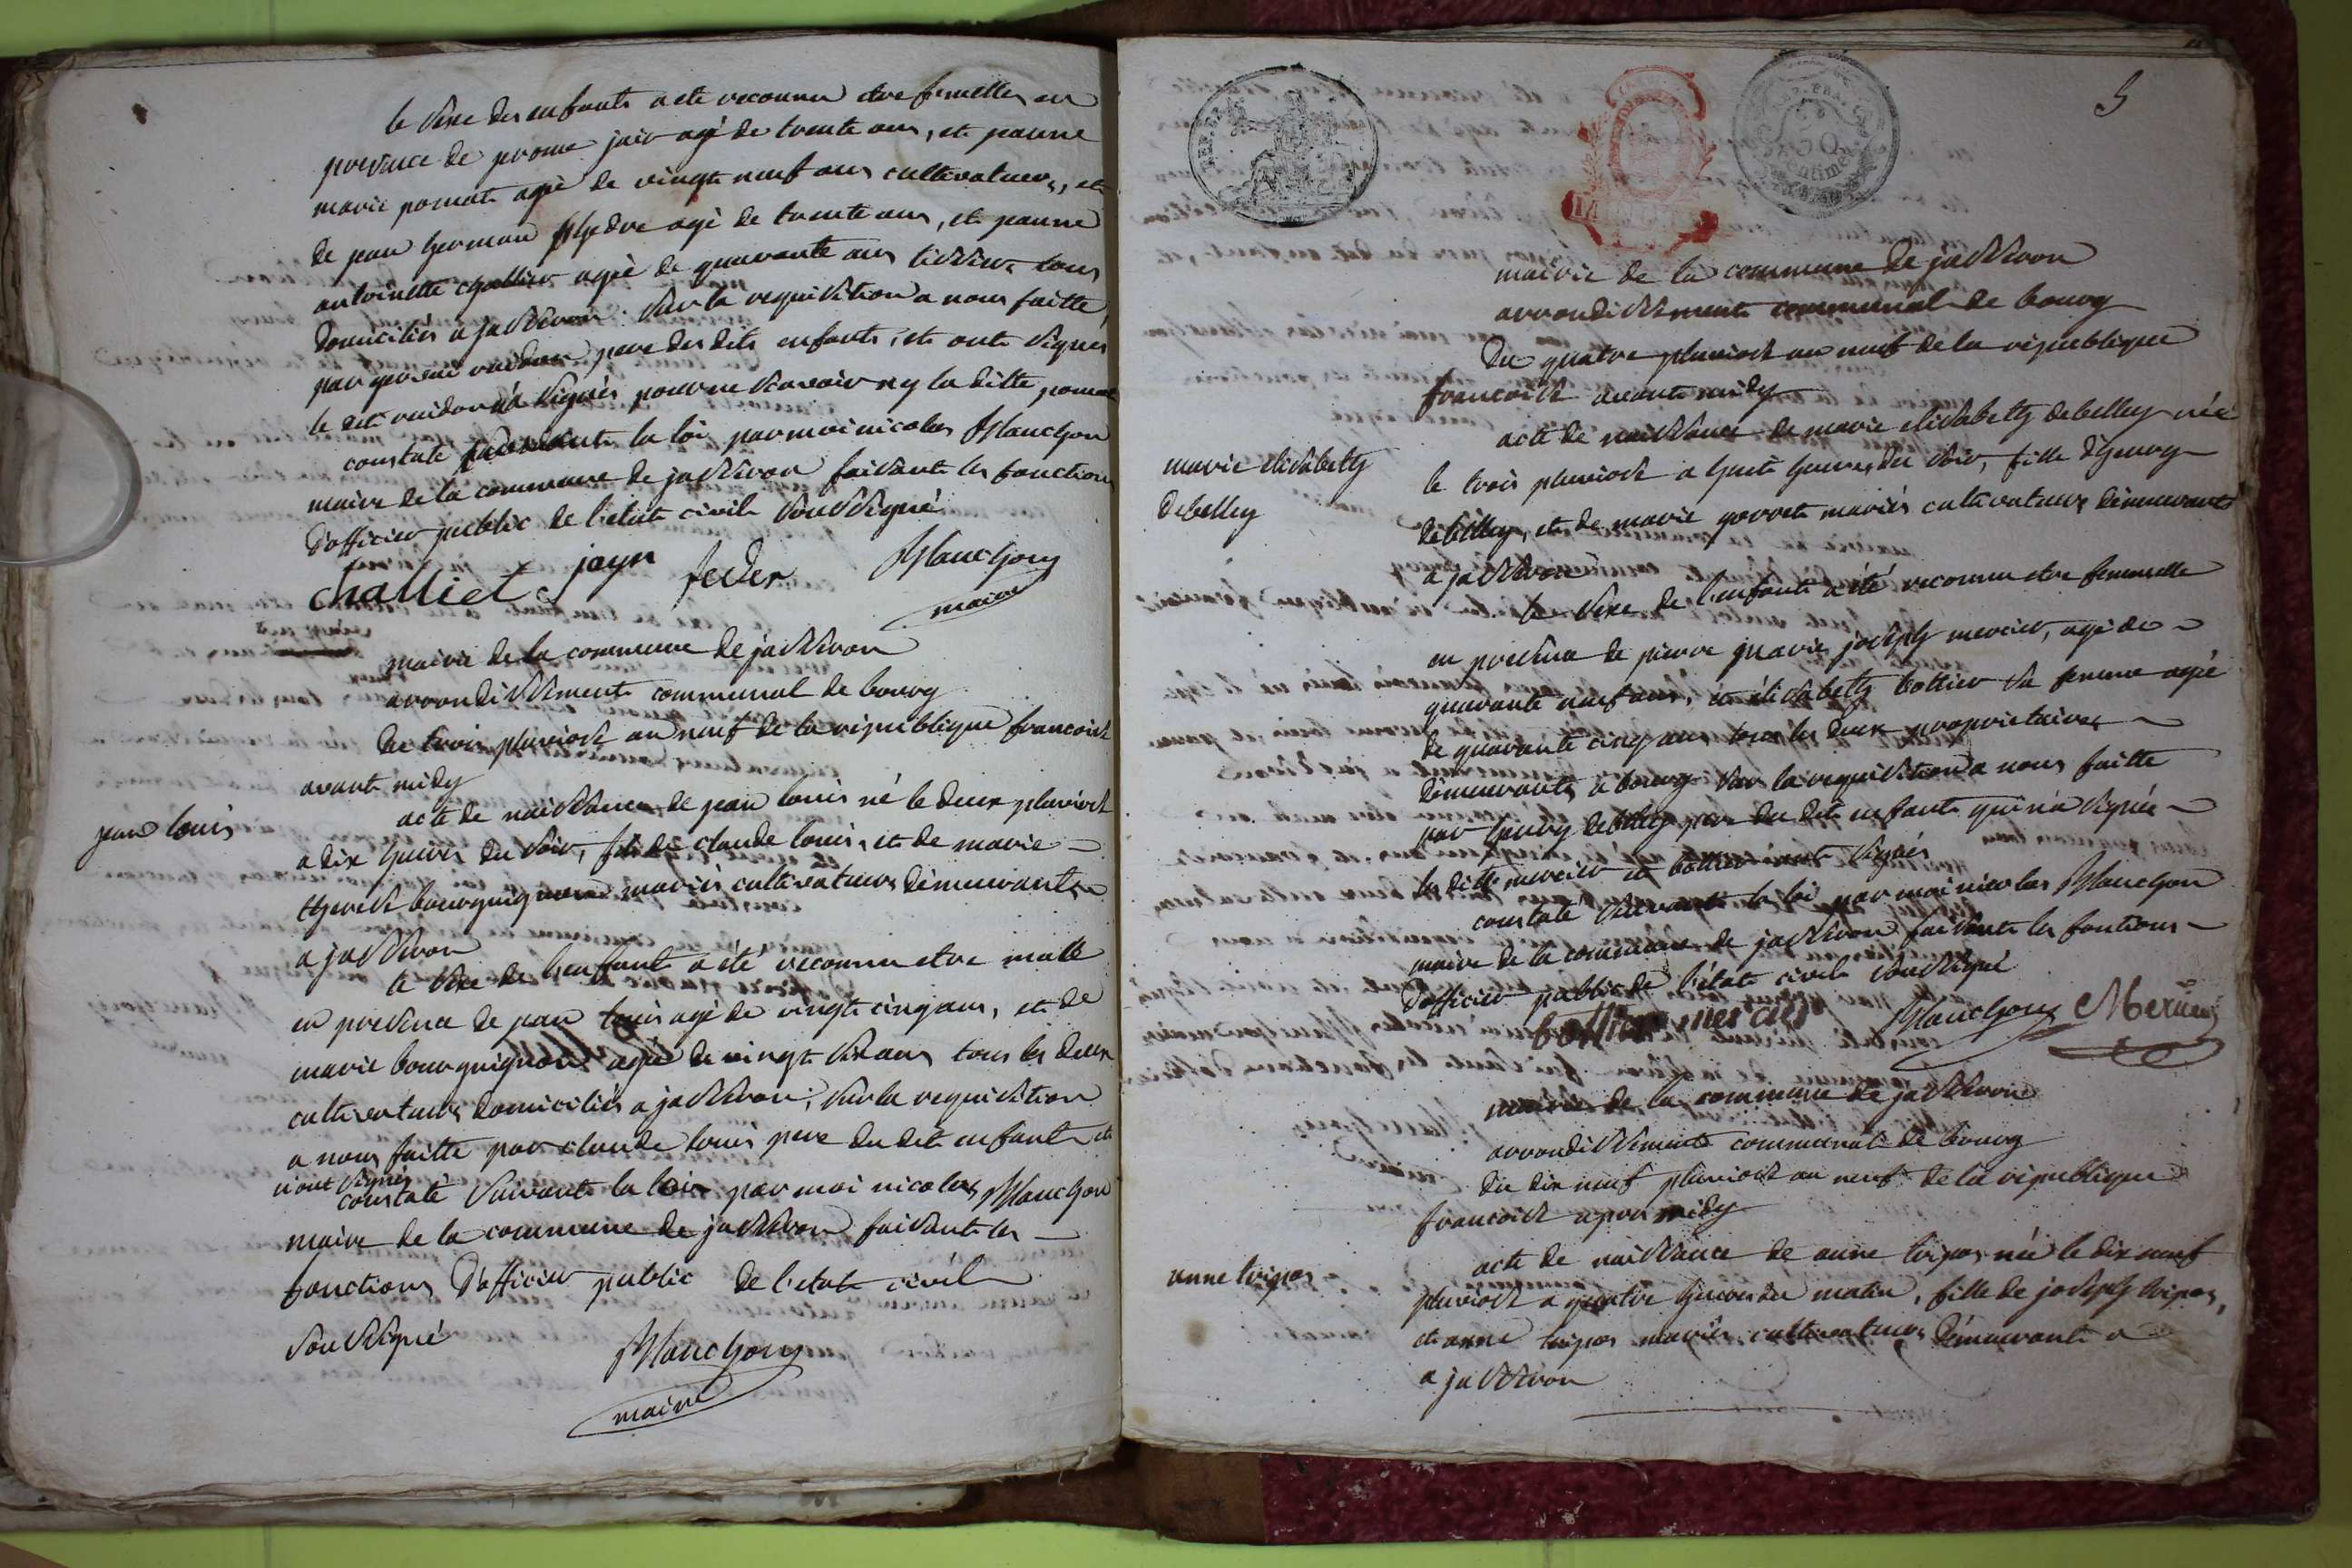 le sexe des enfants a ete reconnu etre femelles en
presence de jerome jair agé de trente ans, et jeanne
marie pomat agé de vingt neuf ans cultivateurs, et
de jean herman phedre agé de trente ans, et jeanne
antoinette challier agé de quarante ans tous
domiciliés a jasseron sur la requisition a nous faitte,
par pere des dits enfants, et ont signes
le dit n'a signés pour ne scavoir ny la ditte pomat
constaté suivant la loi par moi nicolas Manchon
maire de la commune de jasseron faisant les fonctions
d'officier public de l'etat civil soussigné
challiet jayr feder Manchon
maire
mairie de la commune de jasseron
arrondissement communal de bourg
du trois pluviost an neuf de la république francoist
avant midy
jean louis
acte de naissance de jean louis né le deux pluviost
a dix heures du soir, fils de claude louis, et de marie
therest bourguignon mariés cultivateurs demeurants
a jasseron
le sexe de l'enfant a été reconnu etre malle
en presence de jean louis agé de vingt cinq ans, et de
marie bourguignon agée de vingt six ans tous les deux
cultivateurs domiciliés a jasseron, sur la requisition
a nous faitte par claude louis pere du dit enfant et
n'ont signés
constaté suivant la loi par moi nicolas Manchon
maire de la commune de jasseron faisant les
fonctions d'officier public de l'etat civil
soussigné
Manchon
maire
5
50
centimes
mairie de la commune de jasseron
arrondissement communal de bourg
Du quatre pluviost an neuf de la république
francoist avant midy
marie elisabeth
debelley
acte de naissance de marie elisabeth debelley née
le trois pluviost a huit heures du soir, fille d'henry
debelley, et de marie gorret mariés cultivateurs demeurants
a jasseron
le sexe de l'enfant a été reconnu etre femmelle
en presence de pierre marie joseph mercier, agé de
quarante neuf ans, et élisabeth bottier sa femme agée
de quarante cinq ans tous les deux propriétaires
demeurants a bourg sur la requisition a nous faitte
par henry debelley pere du dit enfant qui n'a signée
les dits mercier et bottier ont signés
constaté suivant la loi par moi nicolas Manchon
maire de la commune de jasseron faisant les fontions
d'officier public de l'état civil soussigné
bottier mercier Manchon Mercier
mairie de la commune de jasseron
arrondissement communal de bourg
du dix neuf pluviost an neuf de la république
francoist apres midy
anne tripoz
acte de naissance de anne tripoz née le dix neuf
pluviost a quatre heures du matin, fille de joseph tripoz,
et anne tripoz mariés cultivateurs demeurant a
a jasseron